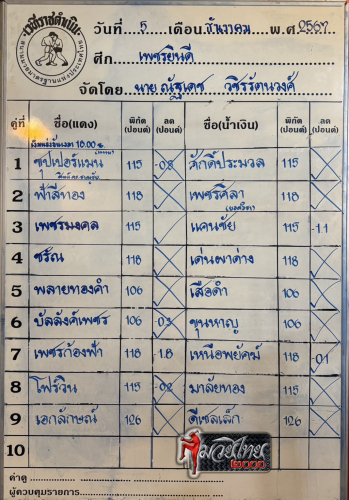 เวทีราชดำเนิน
สนามมวยมาตรฐานแห่งประเทศไทย
วันที่ 5 เดือน ธันวาคม พ.ศ. 2567
ศึก เพชรยินดี
จัดโดย นาย ณัฐเดช วชิรรัตนวงศ์
คู่ที่ ชื่อ(แดง) พิกัด (ปอนด์) ลด (ปอนด์) ชื่อ(น้ำเงิน) พิกัด (ปอนด์) ลด (ปอนด์)
1 ซุปเปอร์แมน 115 -0.8 ศักดิ์ประมวล 115
2 ฟ้าสีทอง 118 เพชรศิลา 118
3 เพชรมงคล 115 แคนชัย 115 -1.1
4 ชรัณ 118 เด่นผาด่าง 118
5 พลายทองคำ 106 เสือดำ 106
6 บัลลังค์เพชร 106 -0.3 ขุนหาญ 106
7 เพชรก้องฟ้า 118 -1.8 เหนือพยัคฆ์ 118 -0.1
8 โฟร์วิน 115 -0.2 มาลัยทอง 115
9 เอกลักษณ์ 126 ดีเซลเล็ก 126
10
ค่าดู
ผู้ควบคุมรายการ
มวยไทย
๒๐๐๐